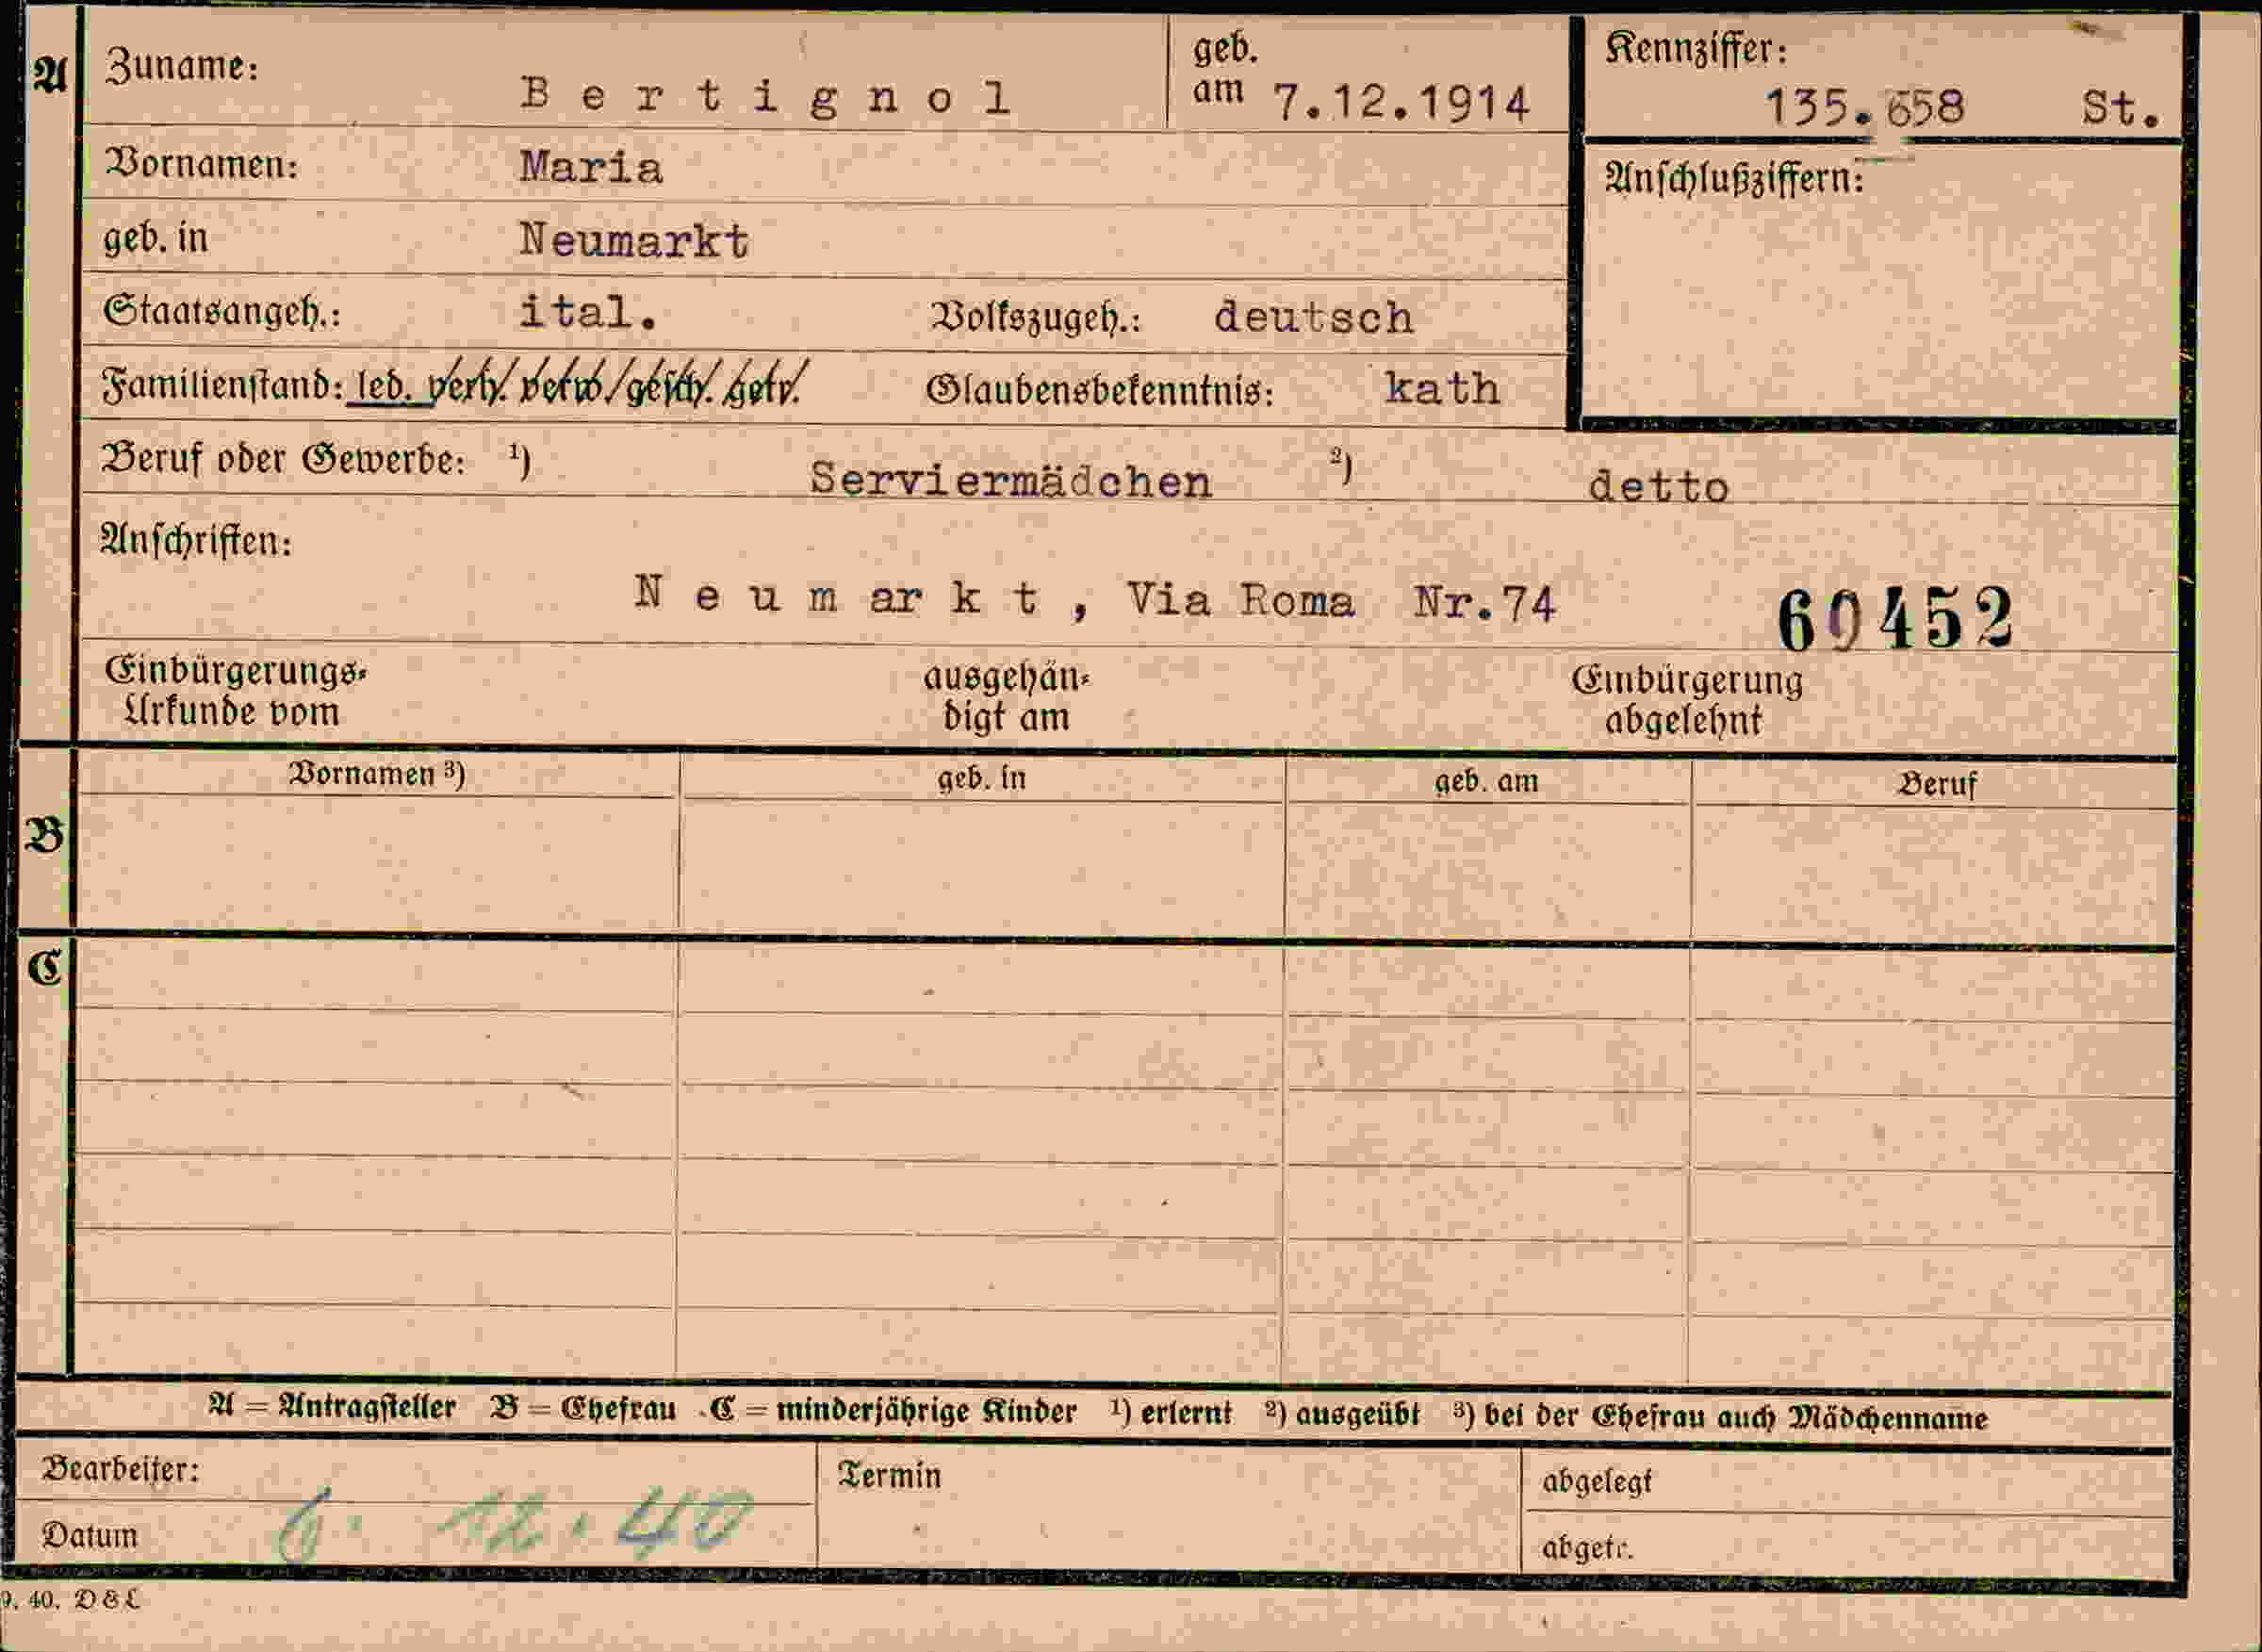 A Zuname: Bertignol geb. am 7.12.1914 Kennziffer: 135.658 St.
Vornamen: Maria Anschlußziffern:
geb. in Neumarkt
Staatsangeh.: ital. Volkszugeh.: deutsch
Familienstand: led. verh. verw. gesch. getr. Glaubensbekenntnis: kath
Beruf oder Gewerbe: 1) Serviermädchen 2) detto
Anschriften:
Neumarkt, Via Roma Nr.74 60452
Einbürgerungs- ausgehän- Einbürgerung
Urkunde vom digt am abgelehnt
Vornamen 3) geb. in geb. am Beruf
B
C
A = Antragsteller B = Ehefrau C = minderjährige Kinder 1) erlernt 2) ausgeübt 3) bei der Ehefrau auch Mädchenname
Bearbeiter: Termin abgelegt
Datum 6. 12. 40 abgetr.
9. 40. D&L